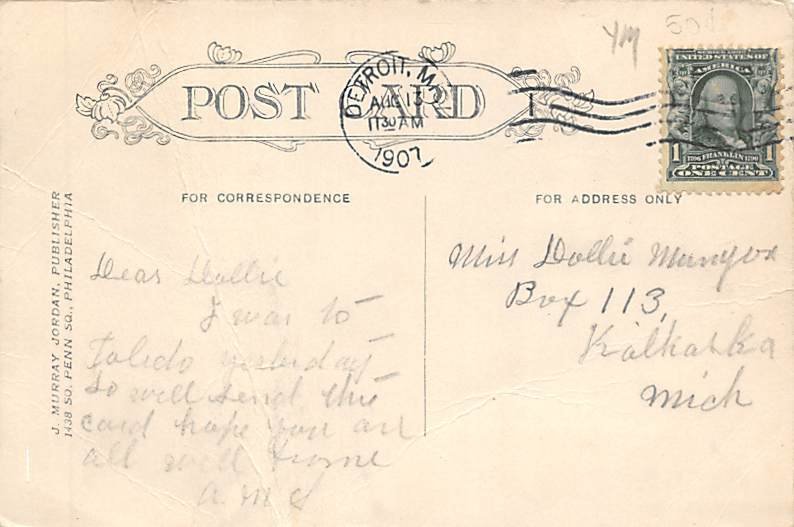 YM 50¢
POST CARD
DETROIT, MICH
AUG 13
11 30 AM
1907
UNITED STATES OF
AMERICA
1 FRANKLIN 1
POSTAGE
ONE CENT
FOR CORRESPONDENCE
FOR ADDRESS ONLY
J. MURRAY JORDAN, PUBLISHER
1438 SO. PENN SQ., PHILADELPHIA
Dear Dollie
I was to
Toledo yesterday
so will send this
card hope you are
all well
Miss Dollie
Box 113,
Kalkaska
Mich